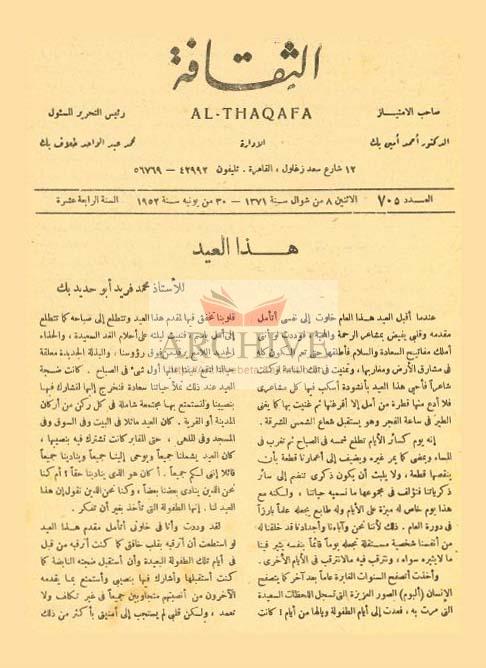 الثقافة
AL-THAQAFA
صاحب الامتياز
الدكتور أحمد أمين بك
رئيس التحرير المسئول
محمد عبد الواحد خلاف بك
الإدارة
١٢ شارع سعد زغلول ، القاهرة . تليفون ٤٢٩٩٢ — ٥٦٧٦٩
العدد ٧٠٥
الاثنين ٨ من شوال سنة ١٣٧١ — ٣٠ من يونيه سنة ١٩٥٢
السنة الرابعة عشرة
هذا العيد
للأستاذ محمد فريد أبو حديد بك
عندما أقبل العيد هذا العام خلوت إلى نفسي أتأمل
مقدمه وقلبي يفيض بمشاعر الرحمة
أملك مفاتيح السعادة والسلام
في مشارق الأرض ومغاربها ، وتمنيت في تلك
شاعراً فأحي هذا العيد بأنشودة أسكب فيها كل مشاعري
فلا أدع منها قطرة من أمل إلا أفرغتها ثم تغنيت بها كما يغني
الطير في ساعة الفجر وهو يستقبل شعاع الشمس المشرقة .
إنه يوم كسائر الأيام تطلع شمسه في الصباح ثم تغرب في
المساء ويمضي كما يمر غيره ويضيف إلى أعمارنا قطعة بأن
ينقصها قطعة ، ولا يلبث أن يكون ذكرى تنضم إلى سائر
ذكرياتنا فتؤلف في مجموعها ما نسميه حياتنا ، ولكنه مع
هذا يوم خاص له ميزة على الأيام وله طابع يجعله علماً بارزاً
في دورة العام . ذلك لأننا نحن وآباءنا وأجدادنا قد خلقنا له
من أنفسنا شخصية مستقلة تجعله يوماً قائماً بنفسه يثير فينا
ما لا يثيره سواه ، ونترقب فيه ما لا نترقب في الأيام الأخرى .
وأخذت أتصفح السنوات الغابرة عاماً بعد آخر كما يتصفح
الإنسان ( ألبوم ) الصور العزيزة التي تسجل اللحظات السعيدة
التي مرت به ، فعدت إلى أيام الطفولة ويالها من أيام ! كانت
قلوبنا تخفق فيها لمقدم هذا العيد ونتطلع إلى صباحه كما نتطلع
إلى أمل على أحلام الغد السعيدة ، والحذاء
الجديد رؤوسنا ، والبدلة الجديدة معلقة
حيالنا في الصباح . كانت ضجة
العيد عند ذلك تملأ حياتنا سعادة فنخرج إليها لنشارك فيها
بنصيبنا ولنستمتع بها مجتمعة شاملة في كل ركن من أركان
المدينة أو القرية . كان العيد ماثلا في البيت وفي السوق وفي
المسجد وفي الملهى ، حتى المقابر كانت تشترك فيه بنصيبها ،
كان العيد يشملنا جميعاً ويوحي إلينا جميعاً وينادينا جميعاً
قائلا إنني لكم جميعاً . أكان هو الذي ينادينا حقاً ؟ أم كنا
نحن الذين ينادي بعضنا بعضاً ، وكنا نحن الذين نقول إن هذا
العيد لنا . إنها الطفولة التي تأخذ بغير أن تفكر .
لقد وددت وأنا في خلوتي أتأمل مقدم هذا العيد
لو استطعت أن أرقبه بقلب خافق كما كنت أرقبه من قبل
في أيام تلك الطفولة البعيدة وأن أستقبل ضجته النابضة كما
كنت أستقبلها وأشارك فيها بنصيبي وأستمتع بما يقدمه
الآخرون من أنصبتهم متجاوبين جميعاً في غير تكلف ولا
تعمد ، ولكن قلبي لم يستجب إلى أمنيتي بأكثر من ذلك
ARCHIVE